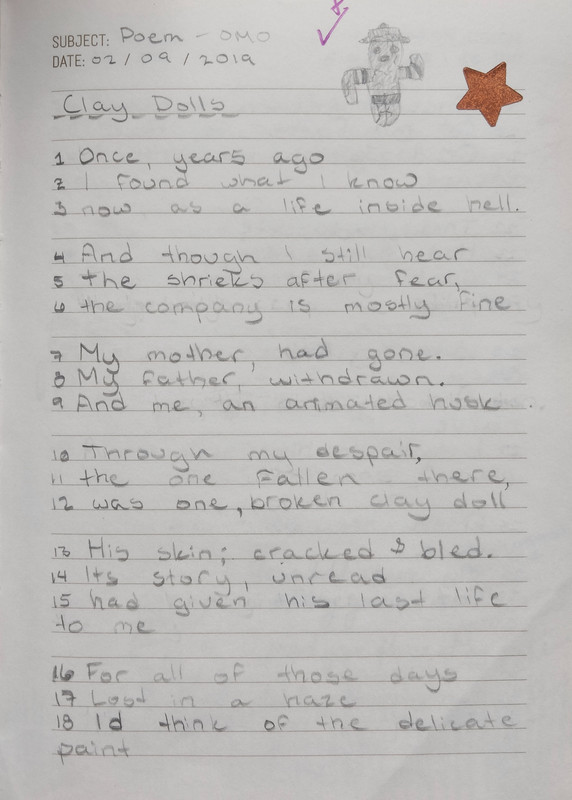 SUBJECT: Poem - OMO
DATE: 02/09/2019
Clay Dolls
1 Once, years ago
2 I found what I know
3 now as a life inside hell.
4 And though I still hear
5 the shrieks after fear,
6 the company is mostly fine
7 My mother, had gone.
8 My father, withdrawn.
9 And me, an animated husk.
10 Through my despair,
11 the one fallen there,
12 was one, broken clay doll
13 His skin; cracked & bled.
14 Its story, unread
15 had given his last life
to me
16 For all of those days
17 Lost in a haze
18 Id think of the delicate
paint